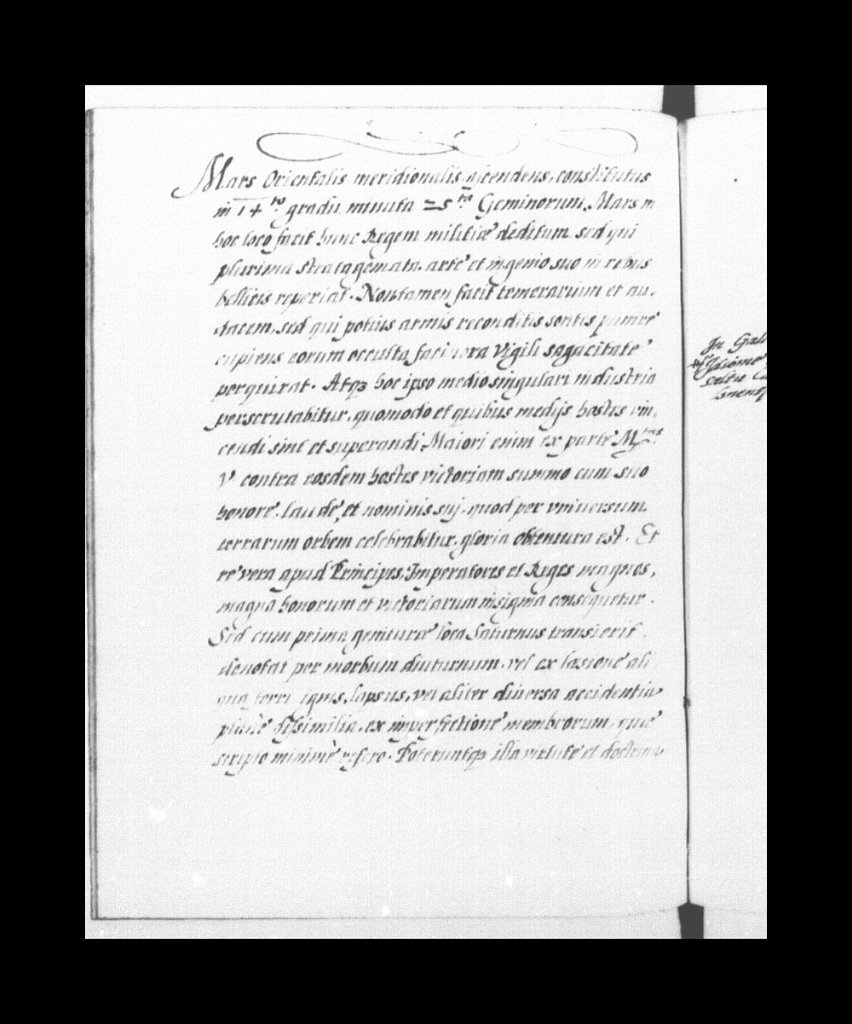 Mars Orientalis meridionalis ascendens, constitutus
in 14to gradu minuta 25ta Geminorum, Mars in
hoc loco facit hunc Regem militiæ deditum sed qui
plurima stratagemata arte et ingenio suo in rebus
bellicis reperiat. Non tamen facit temerarium et au-
dacem, sed qui potius armis reconditis sontes punire
cupiens eorum occulta facinora vigili sagacitate
perquirat. Atq3 hoc ipso medio singulari industria
perscrutabitur, quomodo et quibus medijs hostes vin-
cendi sint et superandi. Maiori enim ex parte M.tas
V contra eosdem hostes victoriam summo cum suo
honore, laude, et nominis suj, quod per vniuersum
terrarum orbem celebrabitur, gloria obtentura est. Et
re vera apud Principes, Imperatores et Reges magnos,
magna honorum et victoriarum insignia consequetur.
Sed cum prima genituræ loca Saturnus transierit
denotat per morbum diuturnum, vel ex læsione ali
qua ferri, ignis, lapsus, vel aliter diuersa accidentia
plane dissimilia, ex imperfectione membrorum, quæ
scripto minime refero. Poteruntq3 illa virtute et doctrina
In
Idiome